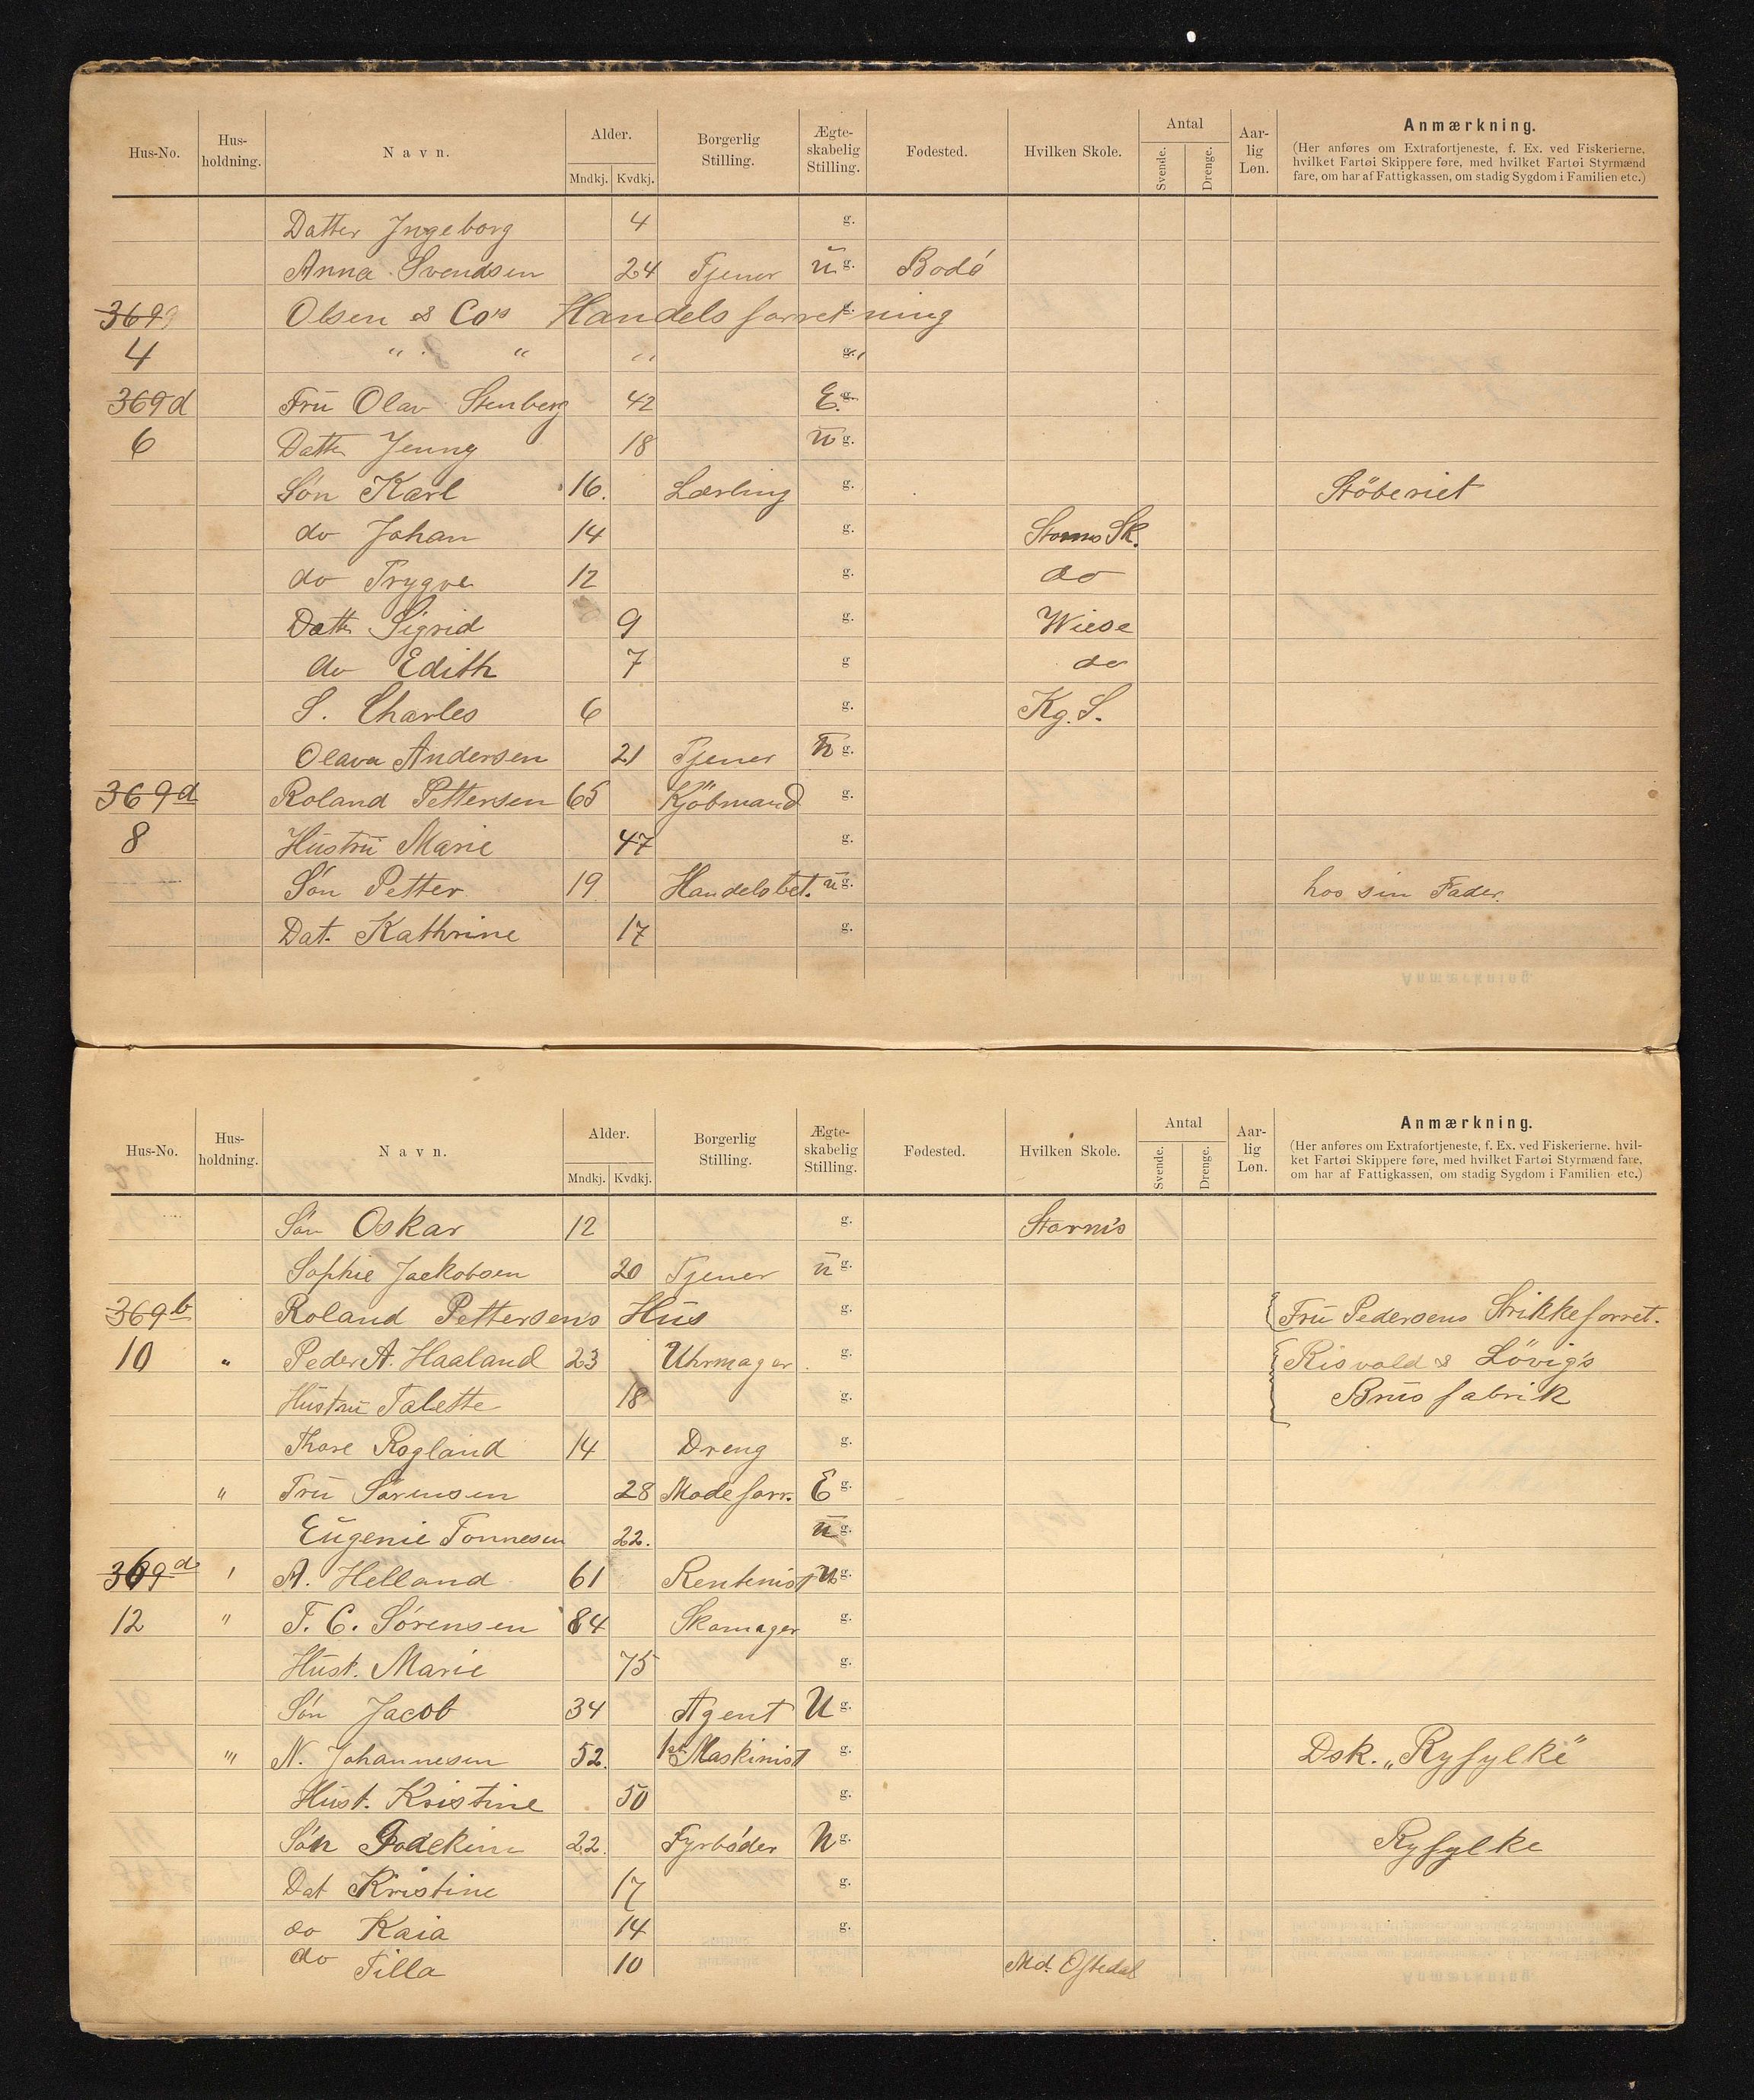 Hus-No. Hus-holdning. Navn. Alder. Mndkj. Kvdkj. Borgerlig Stilling. Ægte-skabelig Stilling. Fødested. Hvilken Skole. Antal Svende. Drenge. Aar-lig Løn. Anmærkning.
(Her anføres om Extrafortjeneste, f. Ex. ved Fiskerierne, hvilket Fartøi Skippere føre, med hvilket Fartøi Styrmænd fare, om har af Fattigkassen, om stadig Sygdom i Familien etc.)
Datter Ingeborg 4 g.
Anna Svendsen 24 Tjener u g. Bodö
369 Olsen & Co's Handelsforretning g.
4 " " " g.
369d Fru Olav Stenberg 42 E. g.
6 Datt. Jenny 18 u g.
Sön Karl 16. Lærling g. Stöberiet
do Johan 14 g. Storms Sk.
do Trygve 12 g. do
Datt. Sigrid 9 g. Wiese
do Edith 7 g do
S. Charles 6 g. Kg. S.
Olava Andersen 21 Tjener u g.
369d Roland Pettersen 65 Kjöbmand g.
8 Hustru Marie 47 g.
Sön Petter 19 Handelsbet. u g. hos sin Fader.
Dat. Kathrine 17 g.
Hus-No. Hus-holdning. Navn. Alder. Mndkj. Kvdkj. Borgerlig Stilling. Ægte-skabelig Stilling. Fødested. Hvilken Skole. Antal Svende. Drenge. Aar-lig Løn. Anmærkning.
(Her anføres om Extrafortjeneste, f. Ex. ved Fiskerierne. hvil-ket Fartøi Skippere føre, med hvilket Fartøi Styrmænd fare, om har af Fattigkassen, om stadig Sygdom i Familien etc.)
Sön Oskar 12 g. Storm's
Sophie Jackobsen 20 Tjener u g.
369b Roland Pettersen's Hus g. Fru Pedersens Strikkeforret.
10 " Peder A. Haaland 23 Uhrmager g. Risvold & Lövig's
Hustru Talette 18 g. Brusfabrik
Thore Rogland 14 Dreng g.
" Fru Sörensen 28 Modeforr. E g.
Eugenie Tonnesen 22. u g.
369d ' A. Helland 61 Rentenist u g.
12 " T. C. Sörensen 84 Skomager g.
Hust. Marie 75 g.
Sön Jacob 34 Agent U g.
"' N. Johannesen 52. 1st Maskinist g. Dsk. „Ryfylke"
Hust. Kristine 50 g.
Sön 22. Fyrböder u g. Ryfylke
Dat Kristine 17 g.
do Kaia 14 g.
do Tilla 10 Md. Oftedal